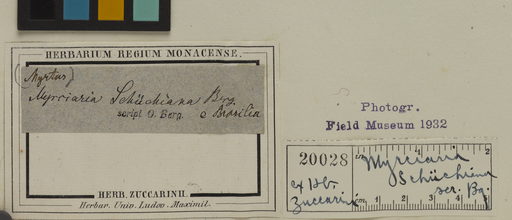 HERBARIUM REGIUM MONACENSE.
(Myrtus)
Myrciaria Schüchiana Berg.
script O. Berg. e Brasilia
HERB. ZUCCARINII
Herbar. Univ. Ludov. Maximil.
Photogr.
Field Museum 1932
20028
Myrciaria
Schüchiana
scr. Bg.
ex Hb.
Zuccarini
cm 1 2 3 4 5